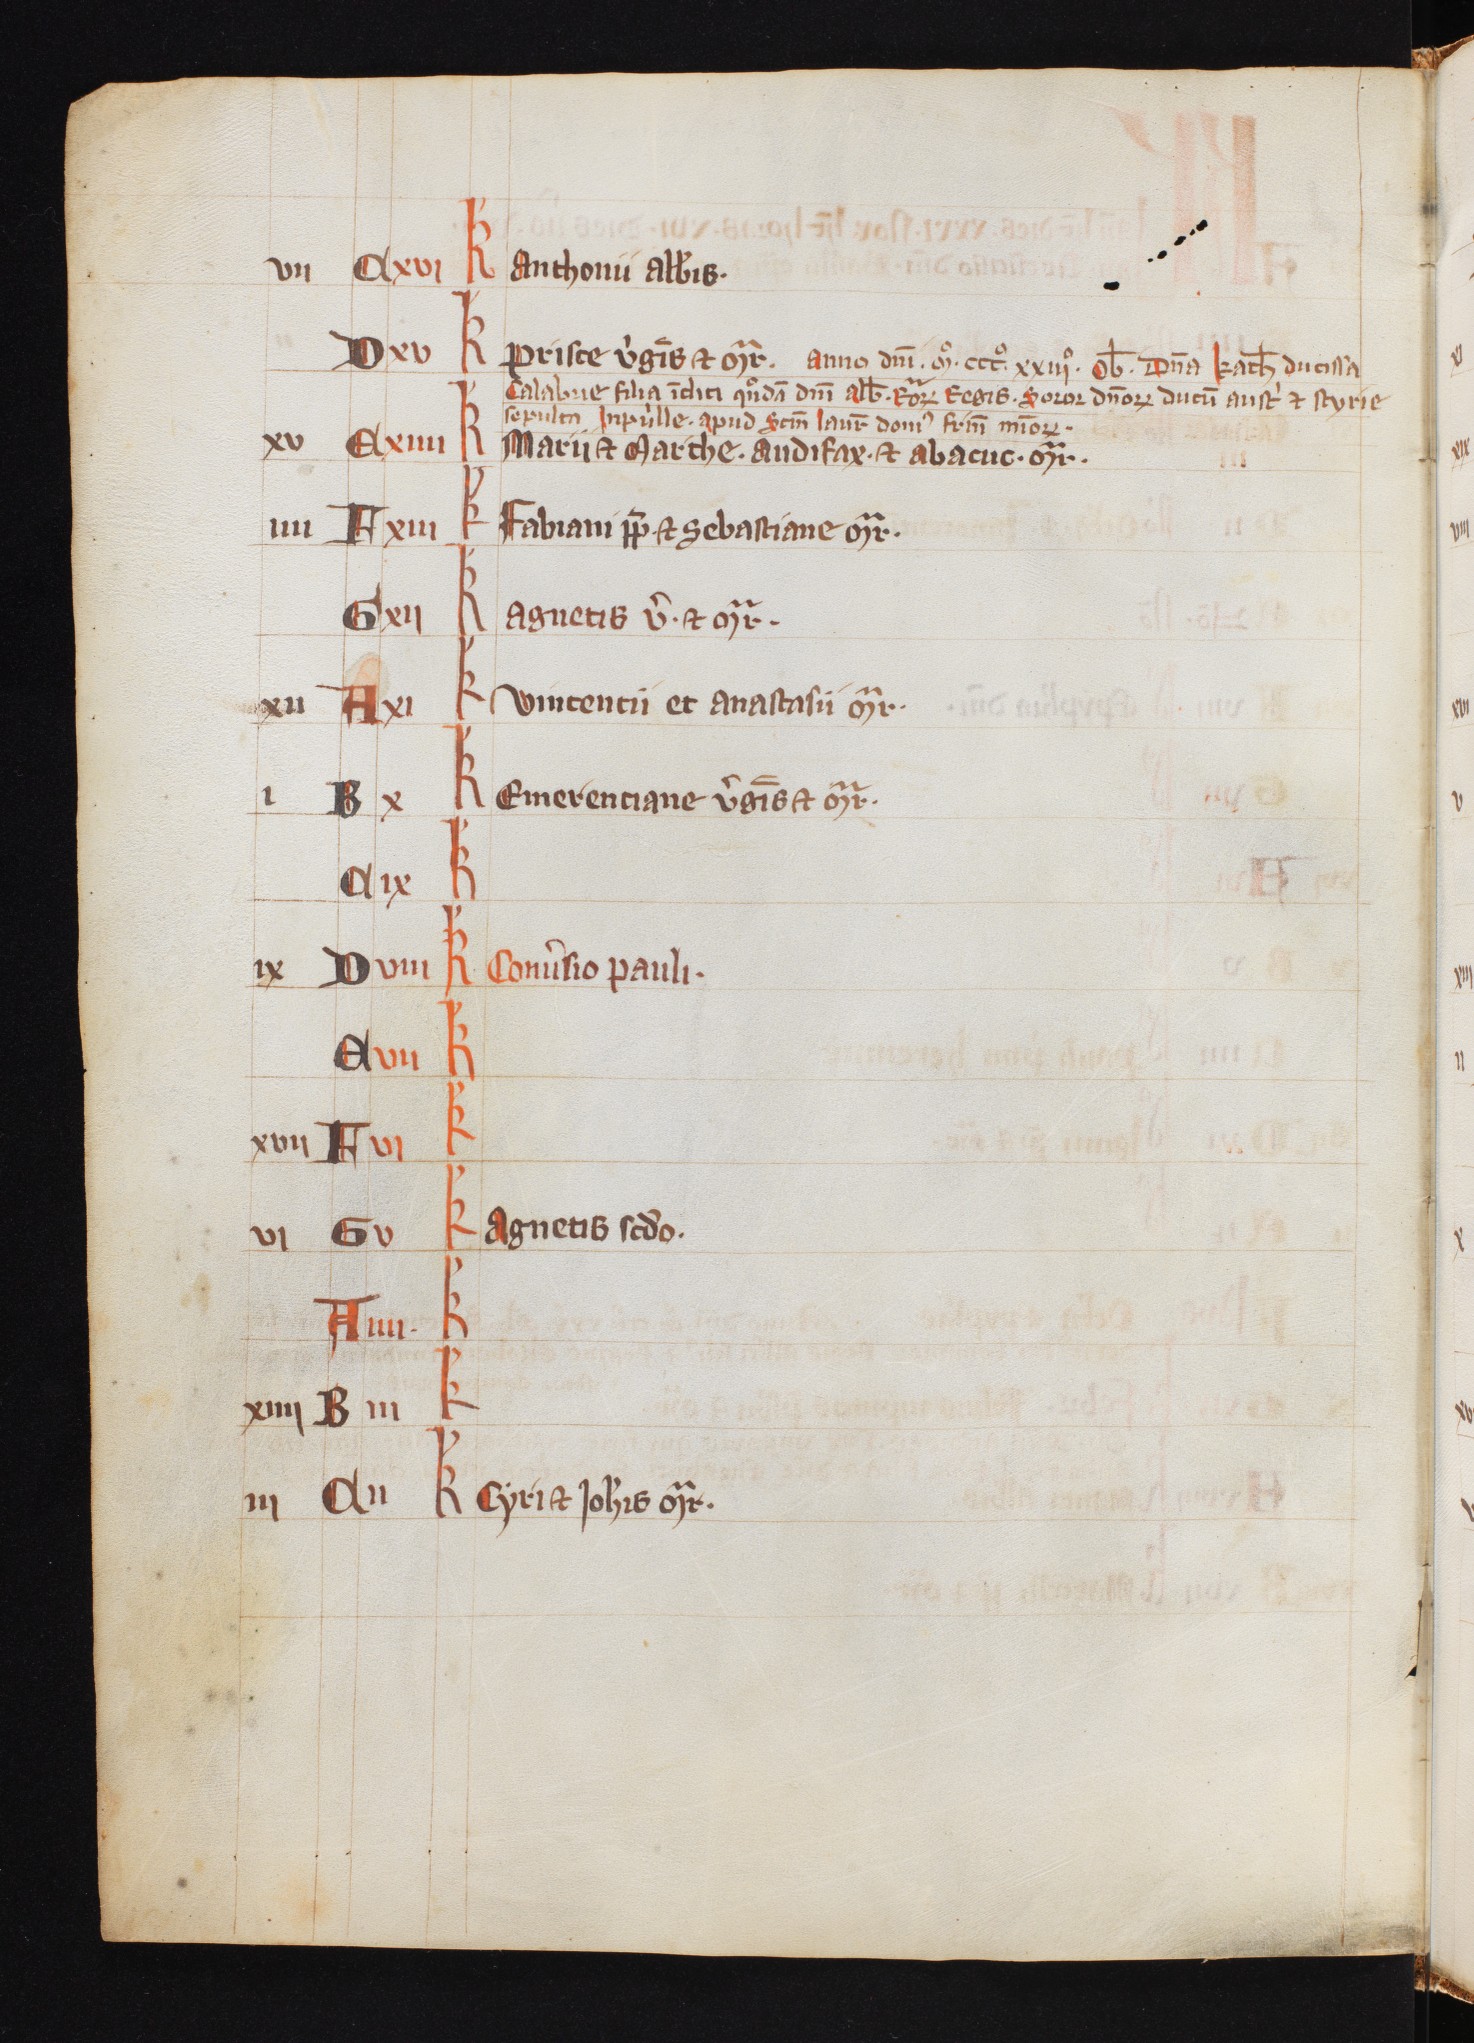 vii C xvi k Anthonii abb̄is.
D xv k Prisce v̓gīs ⁊ mr̄. Anno dn̄i. mͦ. cccͦ. xxiiiͦ. Ob̄. Dn̄a kath̄ ducissa
Calabrie filia īcliti qͦndā dn̄i alb̄. Ro̅oꝝ Regis. Soror dn̄oꝝ ducū austͥ ⁊ styrie
sepulta Inpulle. apud scm̄ laur̄ domͥ fr̄m̄ mīoꝝ.
xv E xiiii k Marii ⁊ Marthe. audifax. ⁊ abacuc. mr̄.
iiii F xiii k Fabiani pp̄ ⁊ Sebastiane mr̄.
G xii k Agnetis v̓. ⁊ mr̄.
xii A xi k Vincencii et anastasii mr̄.
i B x k Emerenciane v̓gīs ⁊ mr̄.
C ix k
ix D viii k Conu̓sio pauli.
E vii k
xvii F vi k
vi G v k Agnetis scd̄o.
A iiii. k
xiiii B iii k
iii C ii k Cyri ⁊ Joh̄is mr̄.